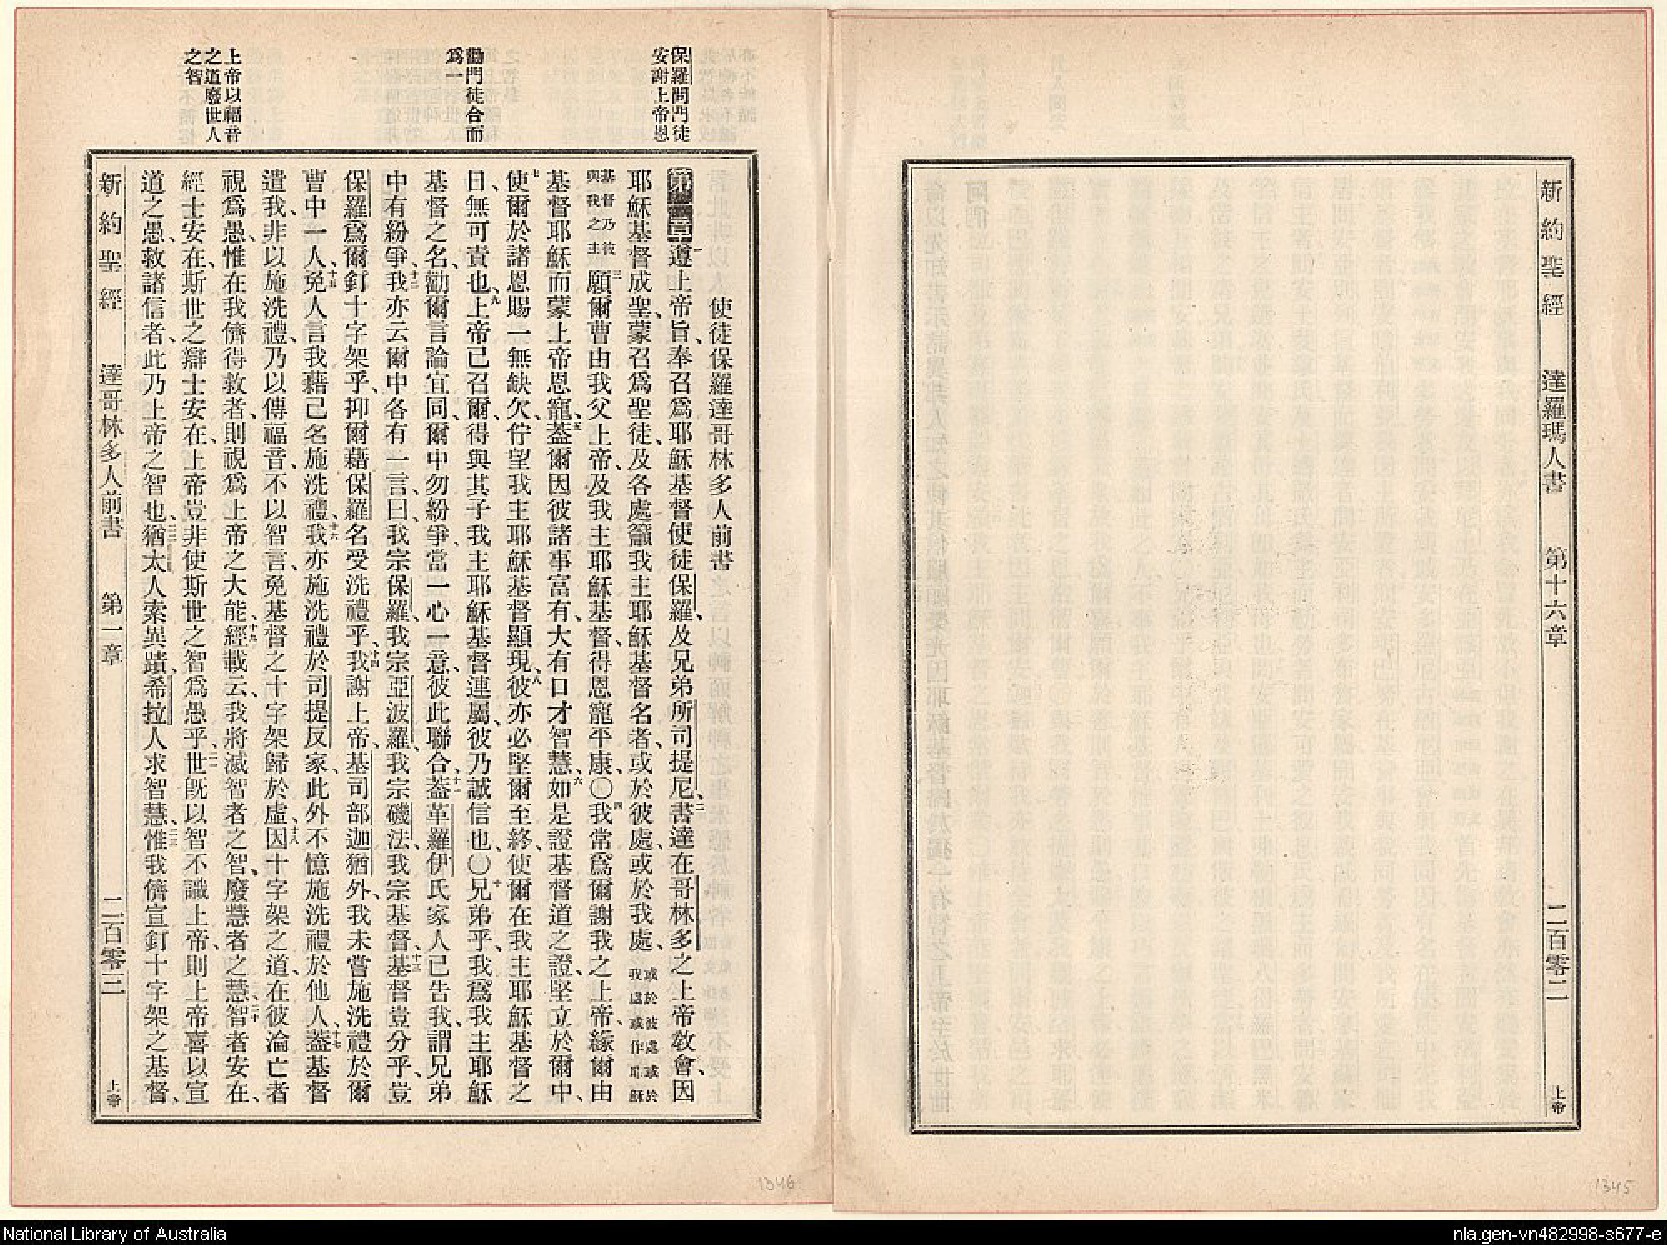 新約聖經 達羅瑪人書 第十六章 二百零二 上帝
保羅問門徒
安謝上帝恩
勸門徒合而
為一
上帝以福音
之道廢世人
之智
使徒保羅達哥林多人前書
第一章 一遵上帝旨、奉召爲耶穌基督使徒保羅、及兄弟所司提尼、二書達在哥林多之上帝教會、因
耶穌基督成聖、蒙召爲聖徒、及各處籲我主耶穌基督名者、或於彼處、或於我處、或於彼處或於我處或作耶穌
基督乃彼與我之主 三願爾曹由我父上帝、及我主耶穌基督、得恩寵平康、○四我常爲爾謝我之上帝、緣爾由
基督耶穌而蒙上帝恩寵、五蓋爾因彼諸事富有、大有口才智慧、六如是證基督道之證、堅立於爾中、
七使爾於諸恩賜一無缺欠、佇望我主耶穌基督顯現、八彼亦必堅爾至終、使爾在我主耶穌基督之
日、無可責也、九上帝已召爾、得與其子我主耶穌基督連屬、彼乃誠信也、○十兄弟乎、我爲我主耶穌
基督之名、勸爾言論宜同、爾中勿紛爭、當一心一意、彼此聯合、十一蓋革羅伊氏家人已告我、謂兄弟
中有紛爭、十二我亦云爾中各有一言曰、我宗保羅、我宗亞波羅、我宗磯法、我宗基督、十三基督豈分乎、豈
保羅爲爾釘十字架乎、抑爾藉保羅名受洗禮乎、十四我謝上帝、基司部迦猶外、我未嘗施洗禮於爾
曹中一人、十五免人言我藉己名施洗禮、十六我亦施洗禮於司提反家、此外不憶施洗禮於他人、十七蓋基督
遣我、非以施洗禮、乃以傳福音、不以智言、免基督之十字架歸於虛、十八因十字架之道、在彼淪亡者
視爲愚、惟在我儕得救者、則視爲上帝之大能、十九經載云、我將滅智者之智、廢慧者之慧、二十智者安在、
經士安在、斯世之辯士安在、上帝豈非使斯世之智爲愚乎、二一世旣以智不識上帝、則上帝喜以宣
道之愚、救諸信者、此乃上帝之智也、二二猶太人索異蹟、希拉人求智慧、二三惟我儕宣釘十字架之基督、
新約聖經 達哥林多人前書 第一章 二百零三 上帝
1346
1345
National Library of Australia
nla.gen-vn482998-s677-e